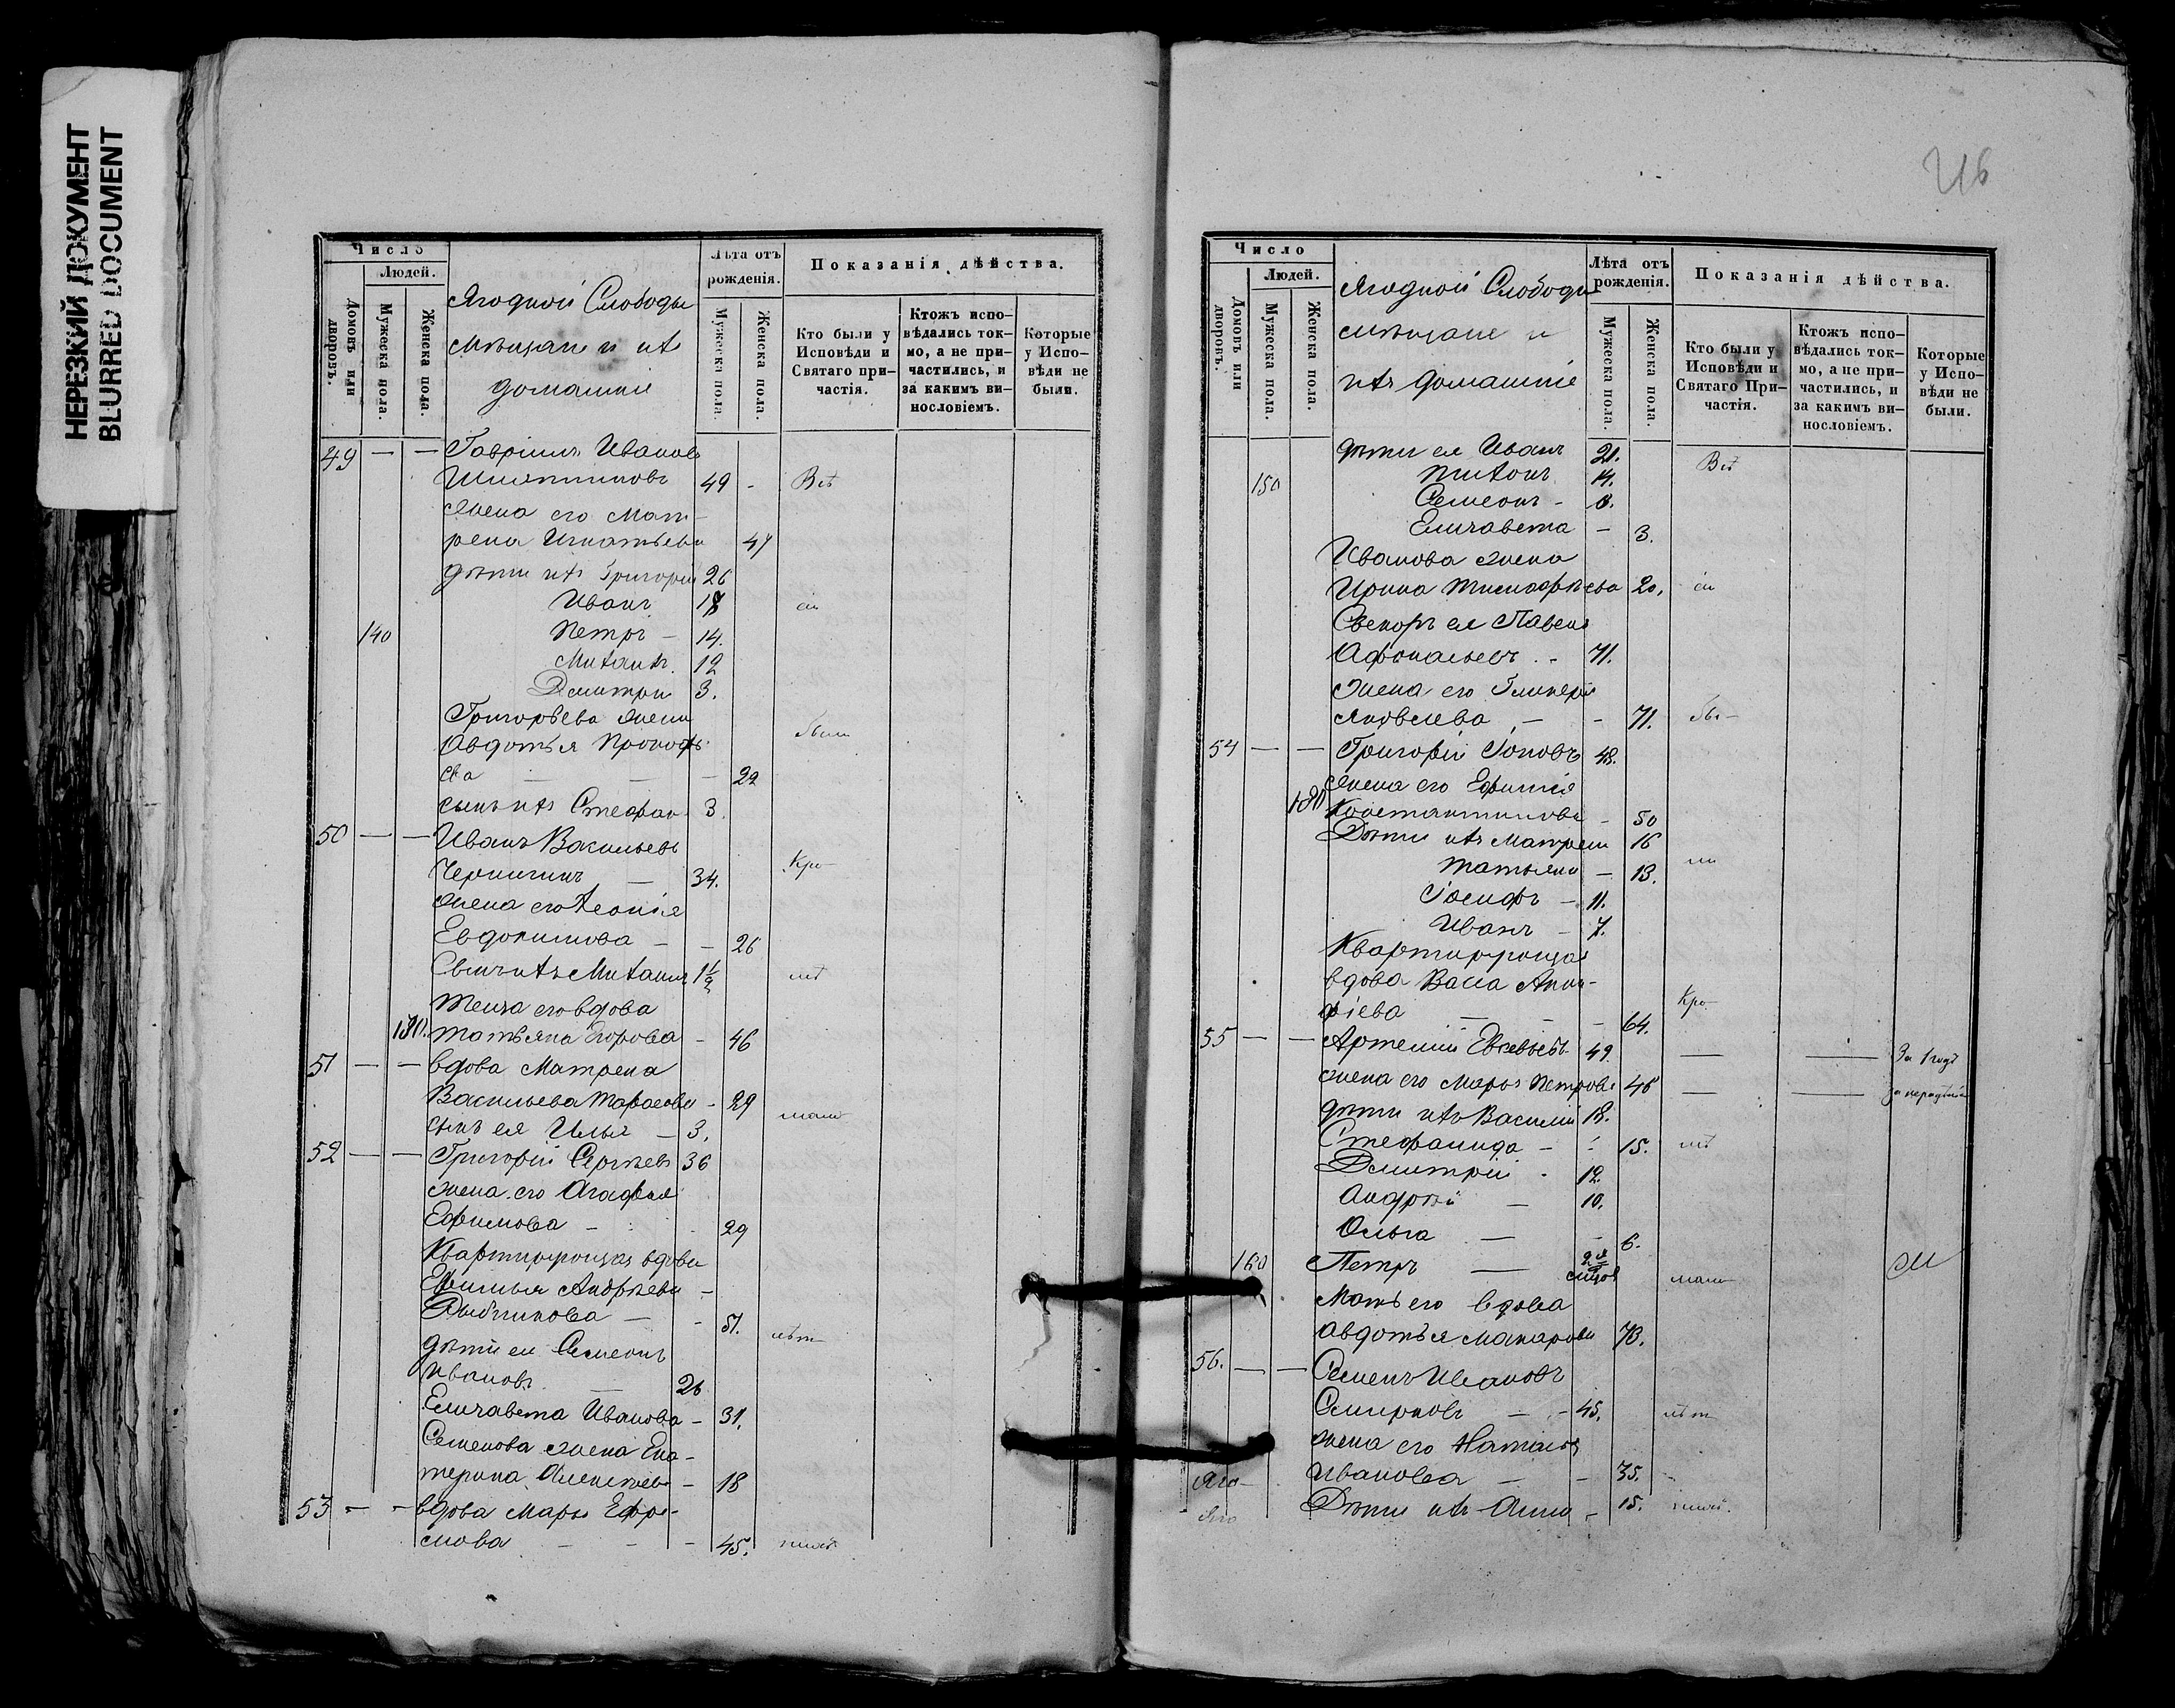 НЕРЕЗКИЙ ДОКУМЕНТ
BLURRED DOCUMENT
Число
Людей.
Домовъ или дворовъ.
Мужеска пола.
Женска пола.
Ягодной Слободы
мѣщане и ихъ
домашніе
Лѣта отъ рожденія.
Мужеска пола.
Женска пола.
Показанія дѣйства.
Кто были у Исповѣди и Святаго причастія.
Ктожъ исповѣдались токмо, а не причастились, и за какимъ винословіемъ.
Которые у Исповѣди не были.
49 — — Гавріилъ Ивановъ
49 - Всѣ
жена его Мат-
рена Игнатьева 47
дѣти ихъ Григорій 26
Иванъ 18 сіи
140 Петръ — 14.
Михаилъ. 12
Дмитрій 3.
Григорьева жена были
Авдотья Прокофь-
ева — — - 22
сынъ ихъ Стефанъ 3.
50 — — Иванъ Васильевъ
— 34. Кро-
жена его
Евдокимова — - 26
Сынъ ихъ Михаилъ 1½ мѣ
Теща его вдова
Татьяна Егорова - 46
51 — — вдова Матрена
Васильева Тарасова - 29
сынъ ея Илья — 3. мало
52 — — Григорій Сергѣевъ 36
жена его Агафья
Ефимова - - 29
Квартирующая вдова
Андрѣева -
Рыбникова — - 51. лѣт-
дѣти ея Семеонъ
Ивановъ — 26
Елизавета Иванова - 31.
Семенова жена Ека-
терина Алексѣева - 18
53 - - вдова Марья Ефре-
мова - - - 45.
216
Число
Людей.
Домовъ или дворовъ.
Мужеска пола.
Женска пола.
Ягодной Слободы
мѣщане и
ихъ домашніе
Лѣта отъ рожденія.
Мужеска пола.
Женска пола.
Показанія дѣйства.
Кто были у Исповѣди и Святаго Причастія.
Ктожъ исповѣдались токмо, а не причастились, и за какимъ винословіемъ.
Которые у Исповѣди не были.
дѣти ея Иванъ 21. Всѣ
150 Тихонъ 14.
Семеонъ - 8.
Елизавета - 3.
Иванова жена
Ирина Тимофѣева 20. сіи
Свекоръ ея Павелъ
Афонасьевъ - 71.
жена его Гликерія
Яковлева — - 71. бы-
54 — — Григорій Іоновъ 48.
жена его
Константинова - 50
Дѣти ихъ Матрена 16
Татьяна - 13. ли
Іосифъ - 11.
Иванъ - 7.
Квартирующая
вдова Васса
фіева — — - 64. Кро-
55 — — Артемій Евсевьевъ 49. — — За 1 годъ
жена его Марья Петрова 46 — — За нерадѣніе
дѣти ихъ Василій 18.
Стефанида - - 15. мѣ
Дмитрій - 12.
Андрѣй — 10.
Ольга — - 6.
160 Петръ — мало
Мать его вдова
Авдотья Макарова 73.
56. — — Семенъ Ивановъ
Смирновъ — - 45. лѣт-
жена его Наталья
Иванова — - 35.
Яго-
Яго
Дѣти ихъ Анна - 15.